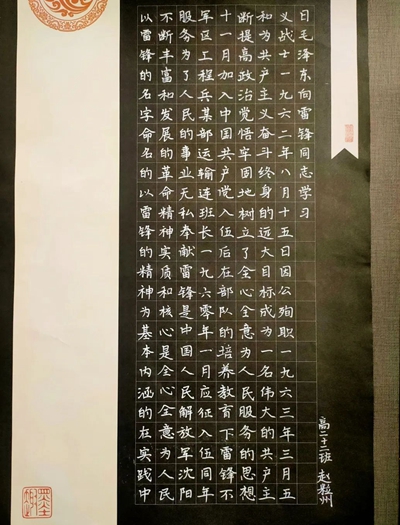 以雷锋的名字命名的以雷锋的精神为基本内涵的在实践中
不断丰富和发展的革命精神实质和核心是全心全意为人民
服务为了人民的事业无私奉献雷锋是中国人民解放军沈阳
军区工程兵某部运输连班长一九六零年一月应征入伍同年
十一月加入中国共产党入伍后在部队的培养教育下雷锋不
断提高政治觉悟牢固地树立了全心全意为人民服务的思想
和为共产主义奋斗终身的远大目标成为一名伟大的共产主
义战士一九六二年八月十五日因公殉职一九六三年三月五
日毛泽东向雷锋同志学习
高二十二班